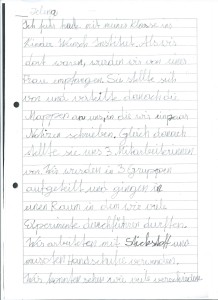 Selina
Ich fuhr heute mit meiner Klasse ins
Institut. Als wir
dort waren, wurden wir von einer
Frau empfangen. Sie stellte sich
vor und verteilte danach die
Mappen an uns, in die wir unsere
Notizen schrieben. Gleich danach
stellte sie uns 3 Mitarbeiterinnen
vor. Wir wurden in 3 Gruppen
aufgeteilt und giengen in
einen Raum in dem wir viele
Experimente durchführen durften.
Wir arbeiteten mit Stickstoff und
mussten Handschuhe verwenden.
Wir konnten sehen wie viele verschiedene